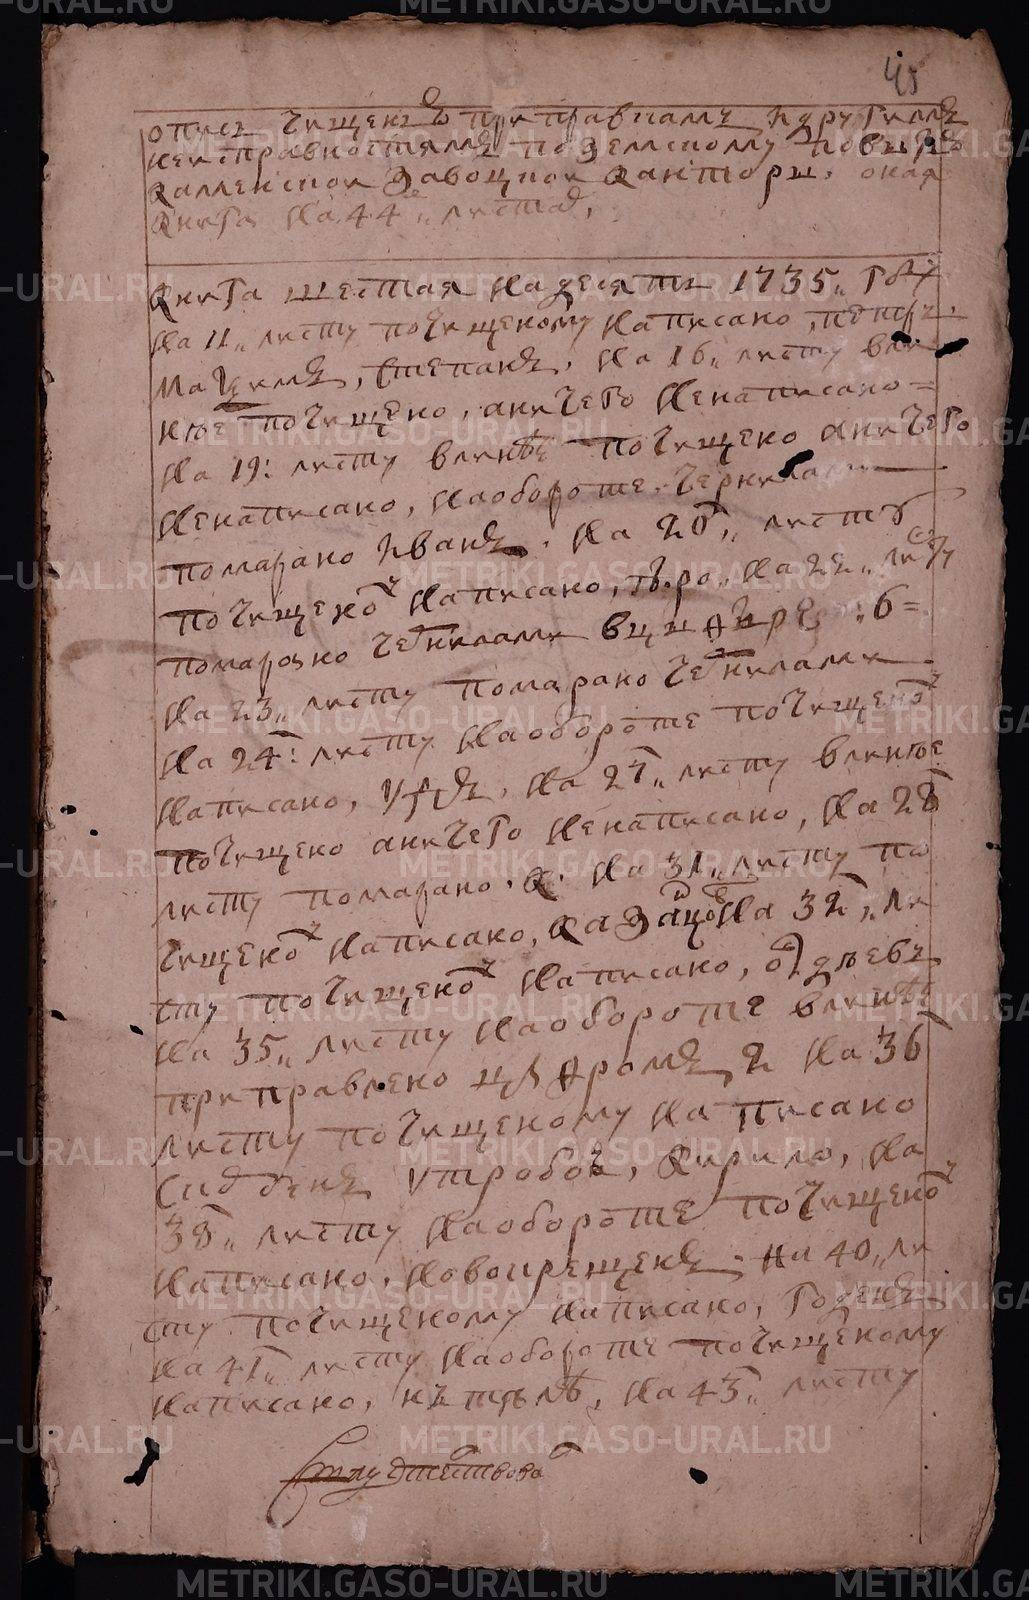 45
опись чищенъ припрафкамъ идругимъ
неисправностямъ поземскому повыт
каменской заводцкой канторы, оная
книга на 44 листах,
книга шестая надесять 1735,, году
на 11,, листу почищеному написано, петръ,
маѯимъ, степанъ, на 16,, листу вли
нѣе почищено, аничего ненаписано=
на 19: листу влинѣе почищено аничего
ненаписано, наобороте чернилами
помарано иванъ. на 20,, листу
почищеному написано, на 22,, листу
помарано чернилами 6=
на 23,, листу помарано чернилами
на 24: листу наобороте почищеному
написано, на 27,, листу влинѣе
почищено аничего ненаписано, на 28
листу помарано. к. на 31,, листу по
чищеному написано, на 32,, ли
сту почищеному написано,
на 35,, листу наобороте влинѣе
приправлено на 36
листу почищеному написано
утробов, кирило, на
38,, листу наобороте почищеному
написано, новокрещенъ. на 40,, ли
сту почищеному написано, годенъ
на 41,, листу наобороте почищеному
написано, на 43,, листу